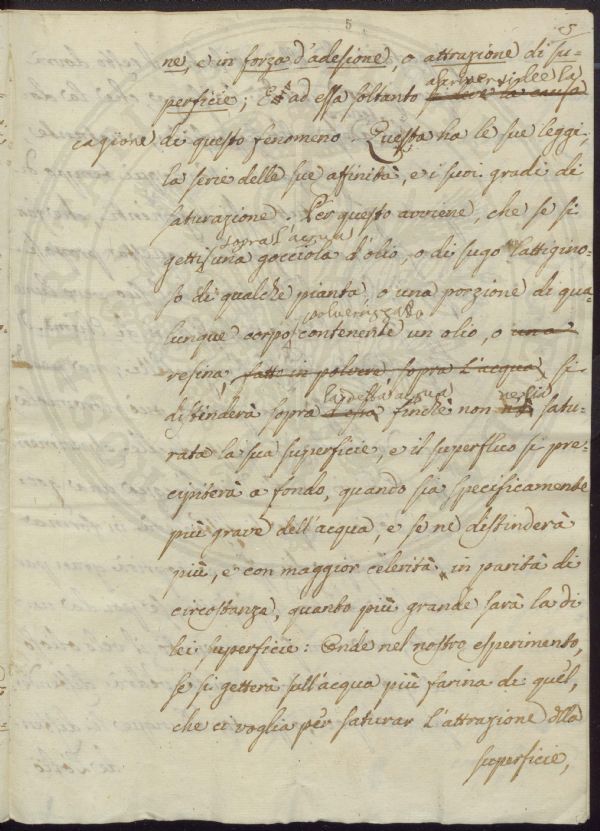 5
5
ne, e in forza d'adesione, o attrazione di su-
ascriversi dee la
perficie; E ad essa soltanto si deve la causa
cagione di questo fenomeno. Questa ha le sue leggi,
la serie delle sue affinità, e i suoi gradi di
saturazione. Per questo avviene, che se si
sopra l'acqua
getti una gocciola d'olio, o di sugo lattigino-
so di qualche pianta, o una porzione di qua-
polverizzato
lunque corpo contenente un olio, o una
resina, fatto in polvere sopra l'acqua, si
la della acqua ne sia
distinderà sopra d'essa finchè non satu-
rata la sua superficie, e il superfluo si pre-
cipiterà a fondo, quando sia specificamente
più grave dell'acqua, e se ne distinderà
più, e con maggior celerità in parità di
circostanze, quanto più grande sarà la di
lei superficie: Onde nel nostro esperimento,
se si getterà sull'acqua più farina di quel,
che ci voglia per saturar l'attrazione dlla
superficie,